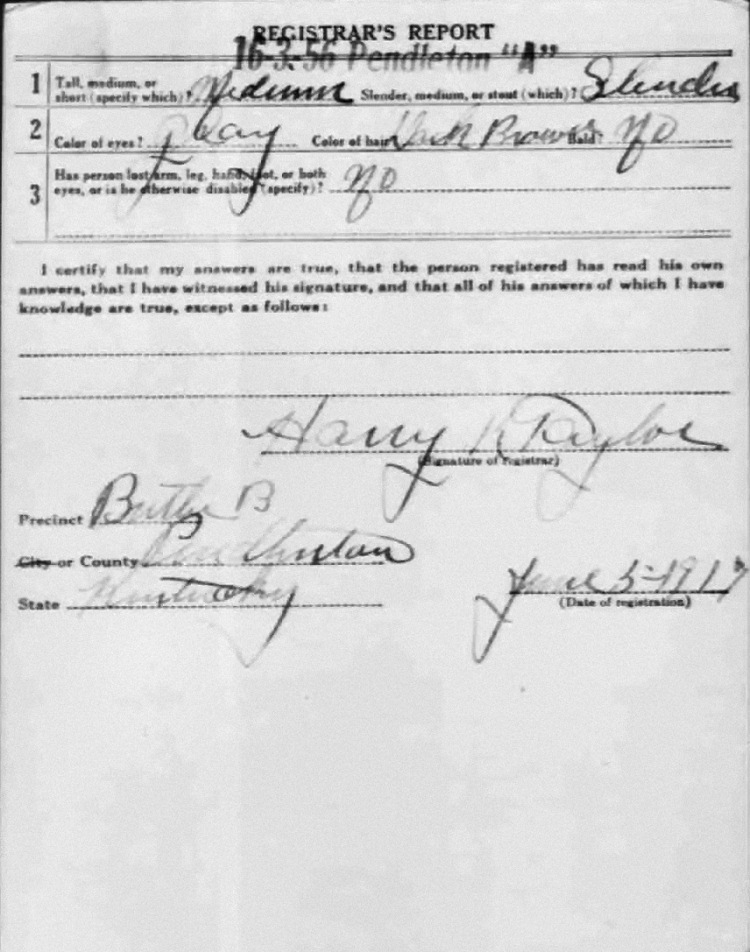 REGISTRAR'S REPORT
16-3-56 Pendleton "A"
1 Tall, medium, or short (specify which)? Medium Slender, medium, or stout (which)? Slender
2 Color of eyes? Gray Color of hair? Dark Brown Bald? No
3 Has person lost arm, leg, hand, foot, or both
eyes, or is he otherwise disabled (specify)? No
I certify that my answers are true, that the person registered has read his own
answers, that I have witnessed his signature, and that all of his answers of which I have
knowledge are true, except as follows:
Harry K Taylor
(Signature of registrar)
Precinct Butler B
City or County Pendleton
State Kentucky
June 5-1917
(Date of registration)